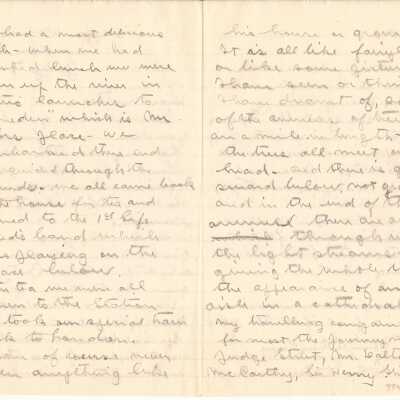 had a most delicious
when we had
lunch we were
up the river in
launches to
which is Mr.
place - we
there and
through the
we all came back
house for tea and
to the 1st Life
band which
playing on the
below.
tea we were all
to the station
took our special train
to London.
of course never
anything like
his house or groun
It is all like fairyl
or like some pictur
I have seen or thin
I have dreamt of,
of the avenues of
are a mile in length
the trees all meet
head - and there is
sward below, not
and in the end of the
avenues there are
through
the light streams
giving the whole
the appearance of an
aisle in a cathedral
my travelling compan
for most the journey
Judge Street, Mrs.
McCarthy, Sir Henry